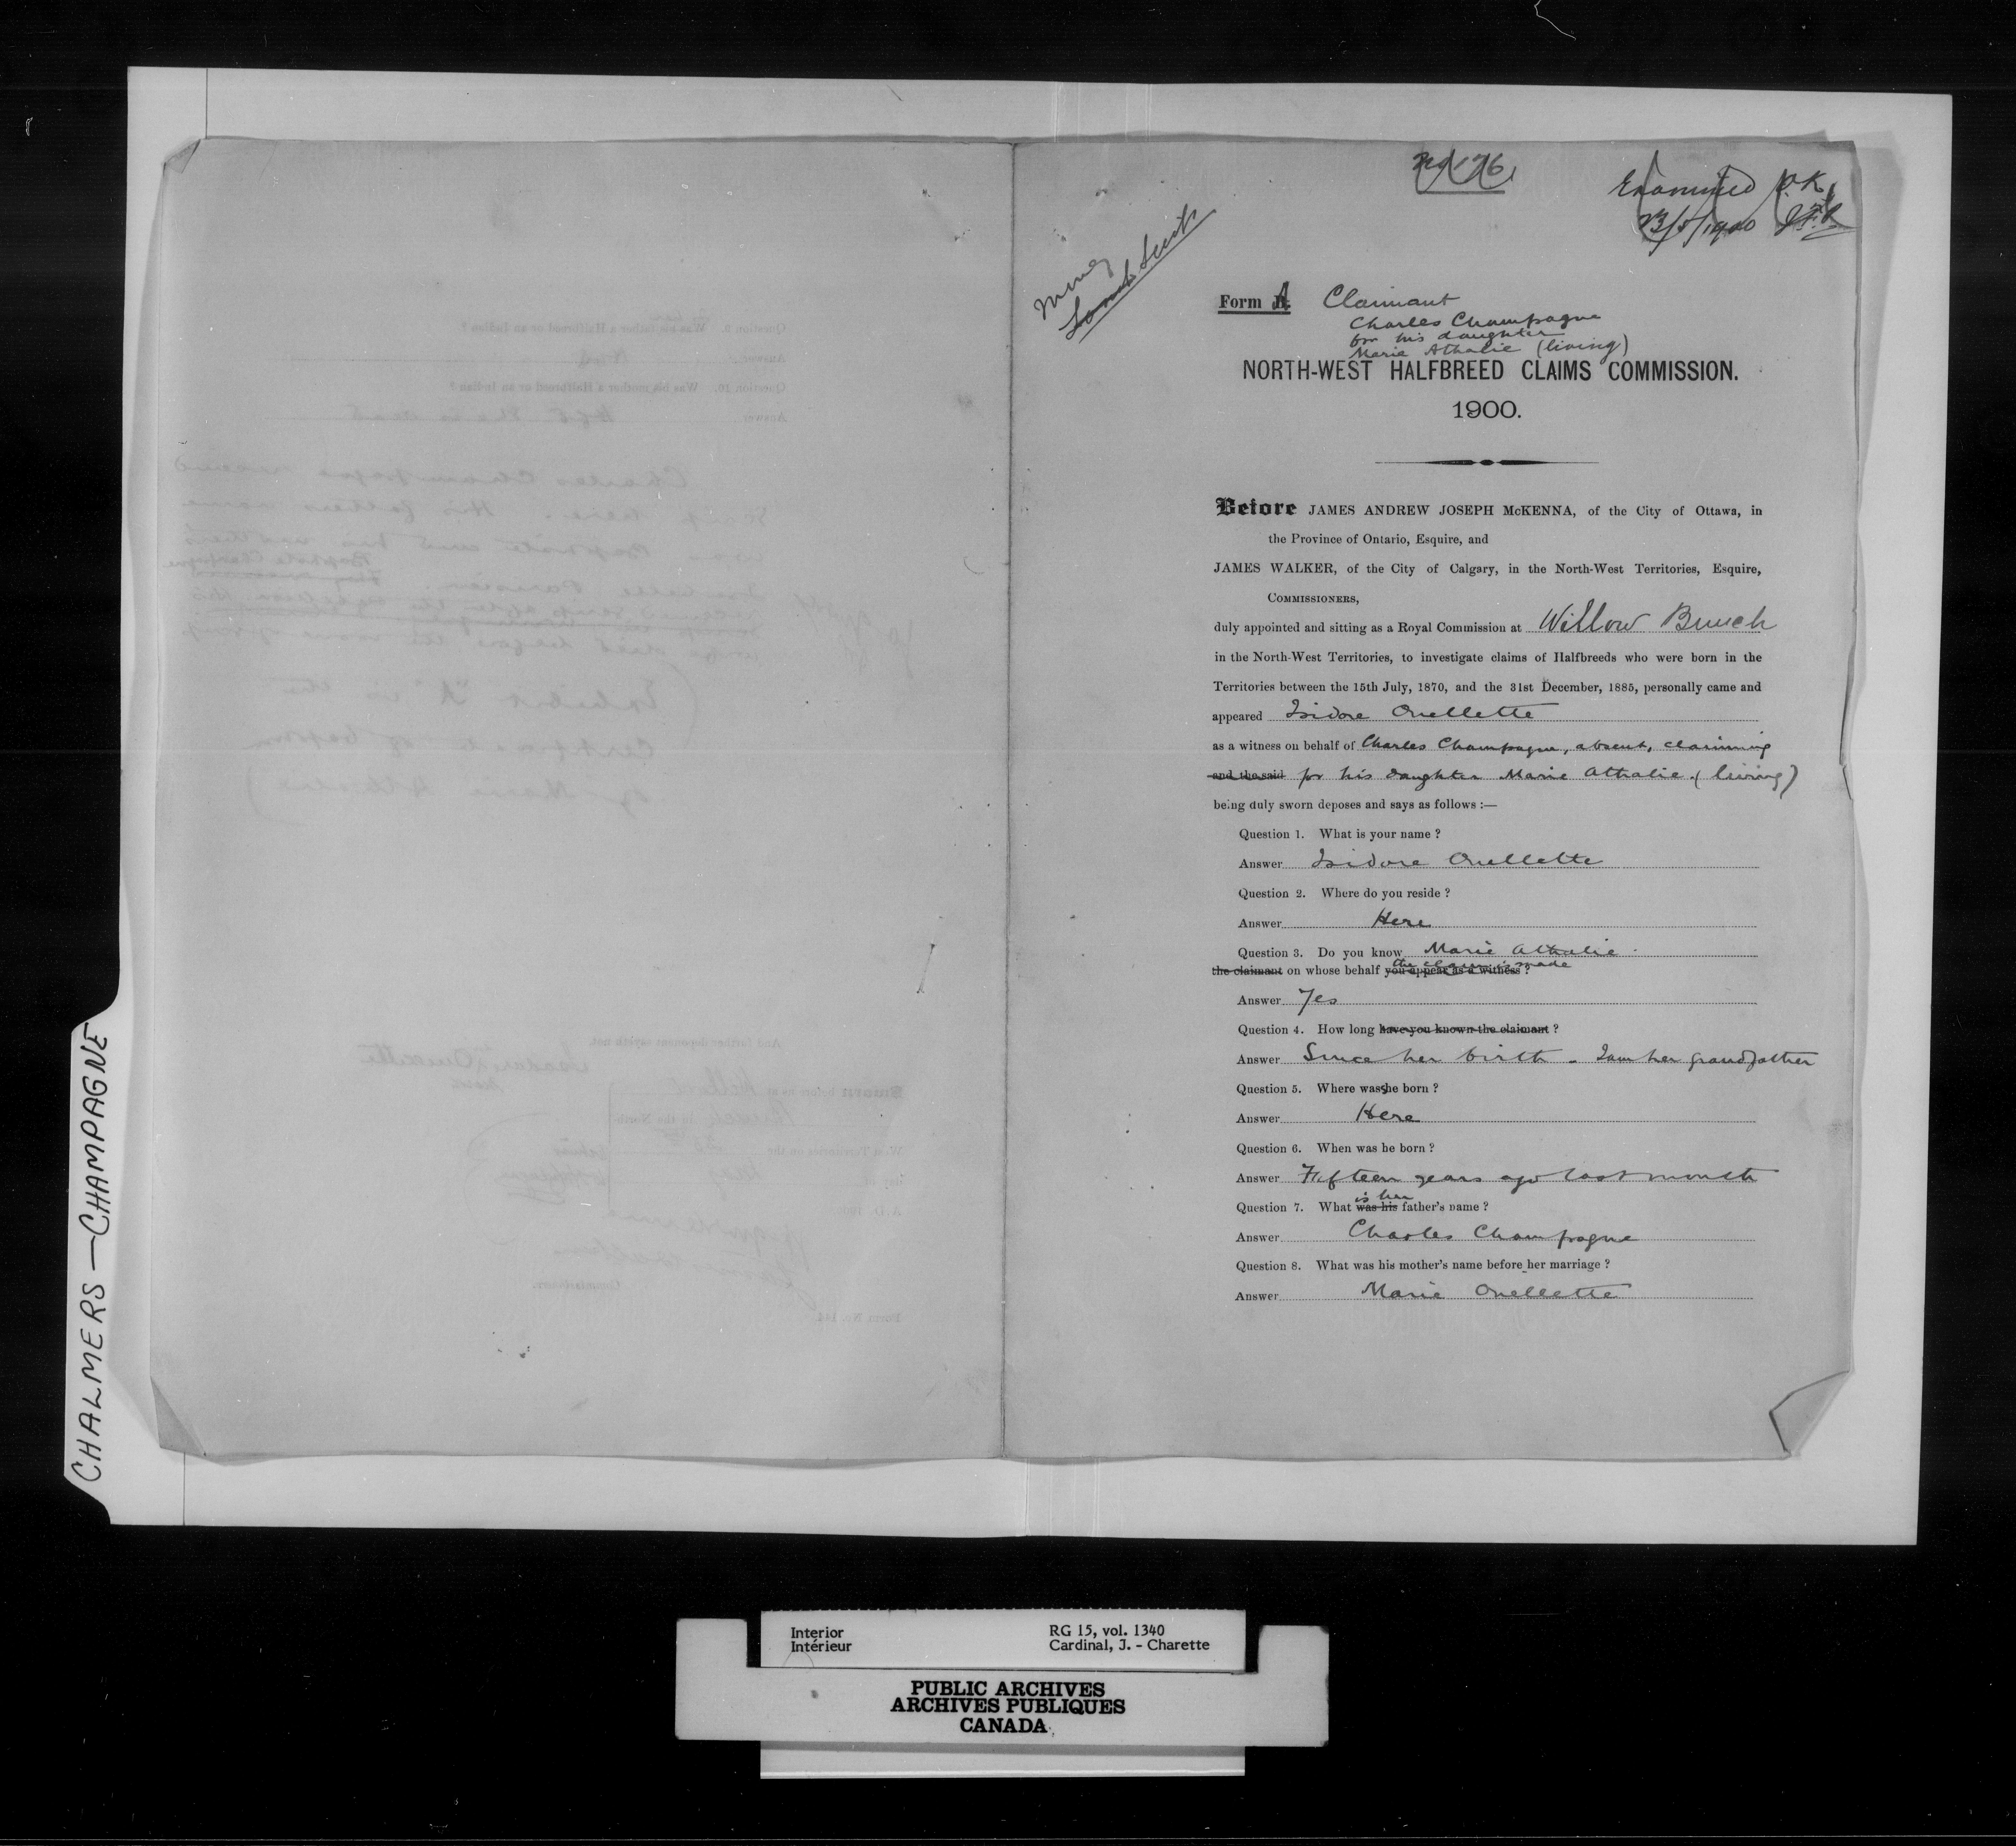 No 76
Examined O.K.
23/5/1900 J.F.R.
Money
Form A. Claimant
Charles Champagne
for his daughter
Marie Athalie (living)
NORTH-WEST HALFBREED CLAIMS COMMISSION.
1900.
Before JAMES ANDREW JOSEPH McKENNA, of the City of Ottawa, in
the Province of Ontario, Esquire, and
JAMES WALKER, of the City of Calgary, in the North-West Territories, Esquire,
COMMISSIONERS,
duly appointed and sitting as a Royal Commission at Willow Bunch
in the North-West Territories, to investigate claims of Halfbreeds who were born in the
Territories between the 15th July, 1870, and the 31st December, 1885, personally came and
appeared Isidore Ouellette
as a witness on behalf of Charles Champagne, absent, claiming
and the said for his daughter Marie Athalie (living)
being duly sworn deposes and says as follows :—
Question 1. What is your name ?
Answer Isidore Ouellette
Question 2. Where do you reside ?
Answer Here
Question 3. Do you know Marie Athalie
the claim is made
the claimant on whose behalf you appear as a witness ?
Answer Yes
Question 4. How long have you known the claimant ?
Answer Since her birth - I am her grandfather
Question 5. Where was she born ?
Answer Here
Question 6. When was he born ?
Answer Fifteen years ago last month
is her
Question 7. What was his father's name ?
Answer Charles Champagne
Question 8. What was his mother's name before her marriage ?
Answer Marie Ouellette
CHALMERS — CHAMPAGNE
Interior RG 15, vol. 1340
Intérieur Cardinal, J. - Charette
PUBLIC ARCHIVES
ARCHIVES PUBLIQUES
CANADA